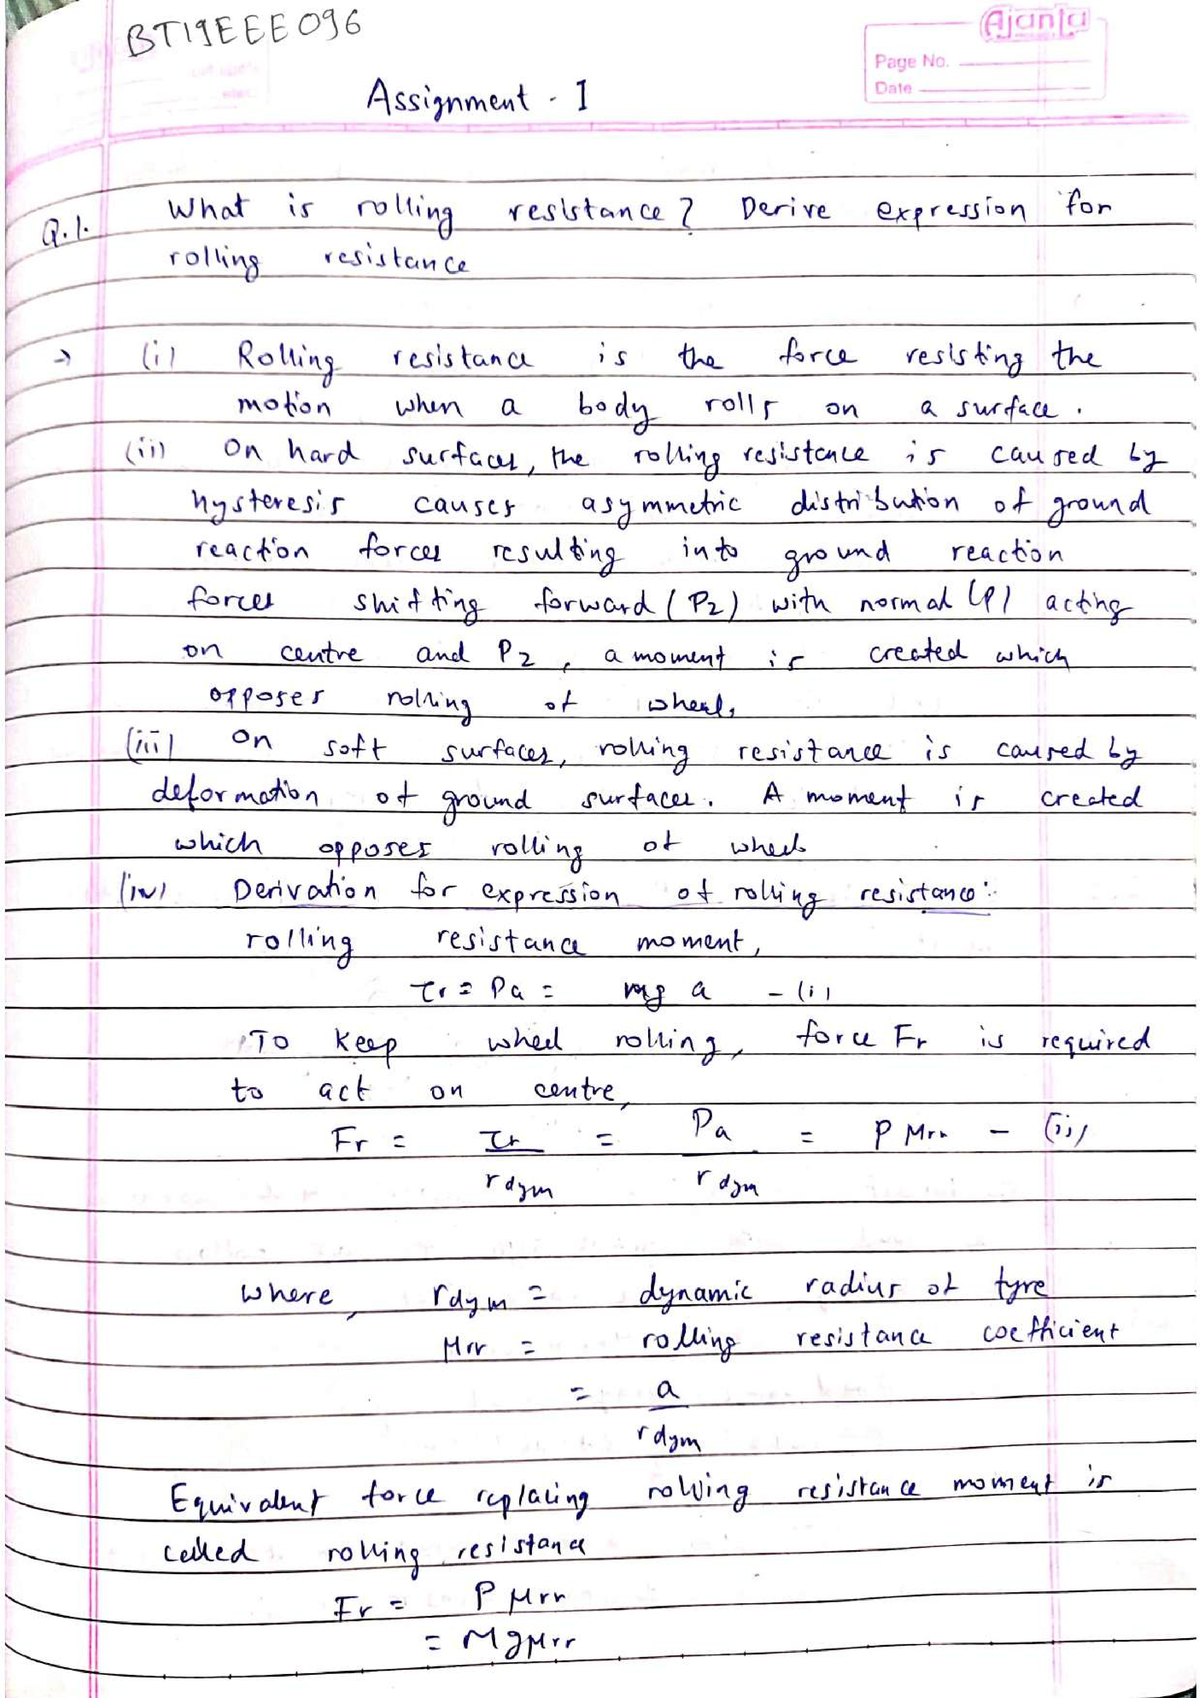 BT19EEE096
Ajanta
Page No.
Date
Assignment - I
Q.1. What is rolling resistance? Derive expression for
rolling resistance
→ (i) Rolling resistance is the force resisting the
motion when a body rolls on a surface.
(ii) On hard surfaces, the rolling resistance is caused by
hysteresis causes asymmetric distribution of ground
reaction forces resulting into ground reaction
forces shifting forward (P2) with normal (P) acting
on centre and P2, a moment is created which
opposes rolling of wheel.
(iii) On soft surfaces, rolling resistance is caused by
deformation of ground surfaces. A moment is created
which opposes rolling of wheel
(iv) Derivation for expression of rolling resistance:
rolling resistance moment,
τr = Pa = mg a - (i)
To keep wheel rolling, force Fr is required
to act on centre,
Fr = τr / rdym = Pa / rdym = P μrr - (ii)
where, rdym = dynamic radius of tyre
μrr = rolling resistance coefficient
= a / rdym
Equivalent force replacing rolving resistance moment is
called rolling resistance
Fr = P μrr
= Mgμrr